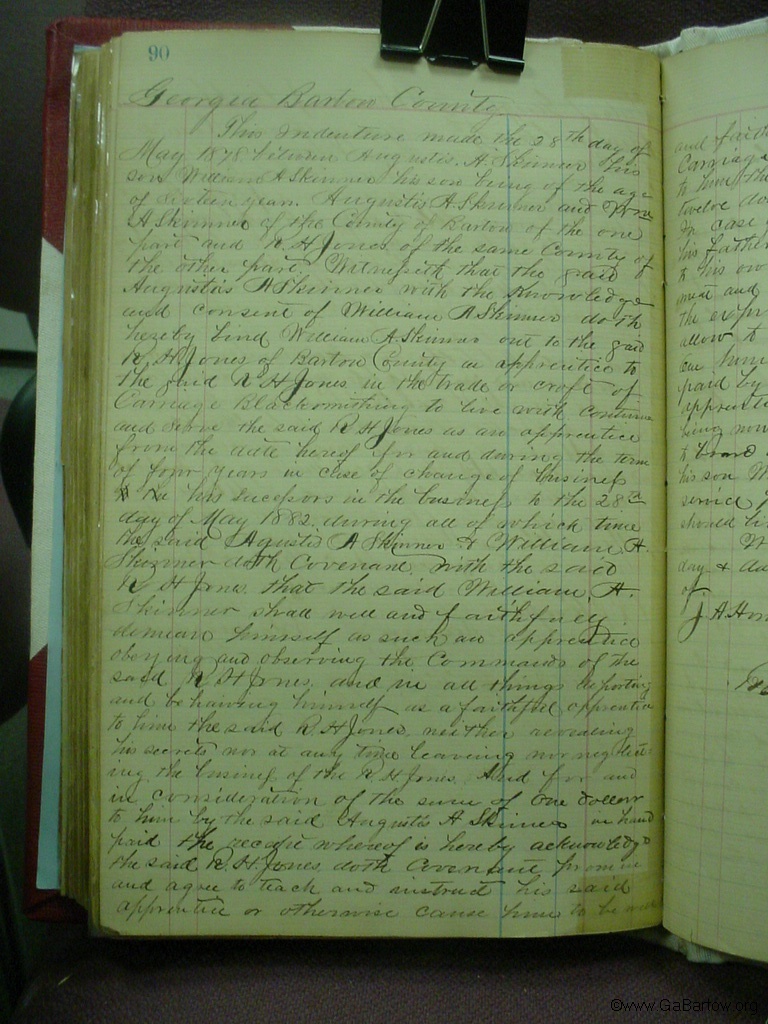 90
Georgia Bartow County
This Indenture made the 28th day of
May 1878 between Augustis. A. Skinner his
son William A Skinner his son being of the age
of sixteen years. Augustis A Skinner and Wm
A Skinner of the County of Bartow of the one
part and R. H Jones of the same County of
the other part. Witnesseth that the said
Augustis A Skinner with the Knowledge
and consent of William A Skinner doth
hereby bind William A Skinner out to the said
R. H Jones of Bartow County as apprentice to
the said R H Jones in the trade or craft of
Carriage Blacksmithing to live with continue
and serve the said R H Jones as an apprentice
from the date hereof for and during the term
of four years in case of change of business
to his successors in the business to the 28th
day of May 1882. during all of which time
the said Agustis A Skinner & William A.
Skinner doth Covenant with the said
R. H Jones. that the said William A.
Skinner shall well and faithfully
demean himself as such an apprentice
obeying and observing the Commands of the
said R. H Jones. and in all things deporting
and behaving himself as a faithful apprentice
to him the said R. H Jones. neither revealing
his secrets nor at any time leaving nor neglect-
ing the business of the R. H Jones. And for and
in consideration of the sum of One dollar
to him by the said Augustis A Skinner in hand
paid the receipt whereof is hereby acknowledgd
the said R. H. Jones. doth Covenant promise
and agree to teach and instruct his said
apprentice or otherwise cause him to be
and faith
Carriage
to him the
twelve do
In case
his father
to his ow
ment and
the expr
allow t
paid by
apprenti
being now
to board
his son W
service
should li
W
day &
of
J. A. How
©www.GaBartow.org